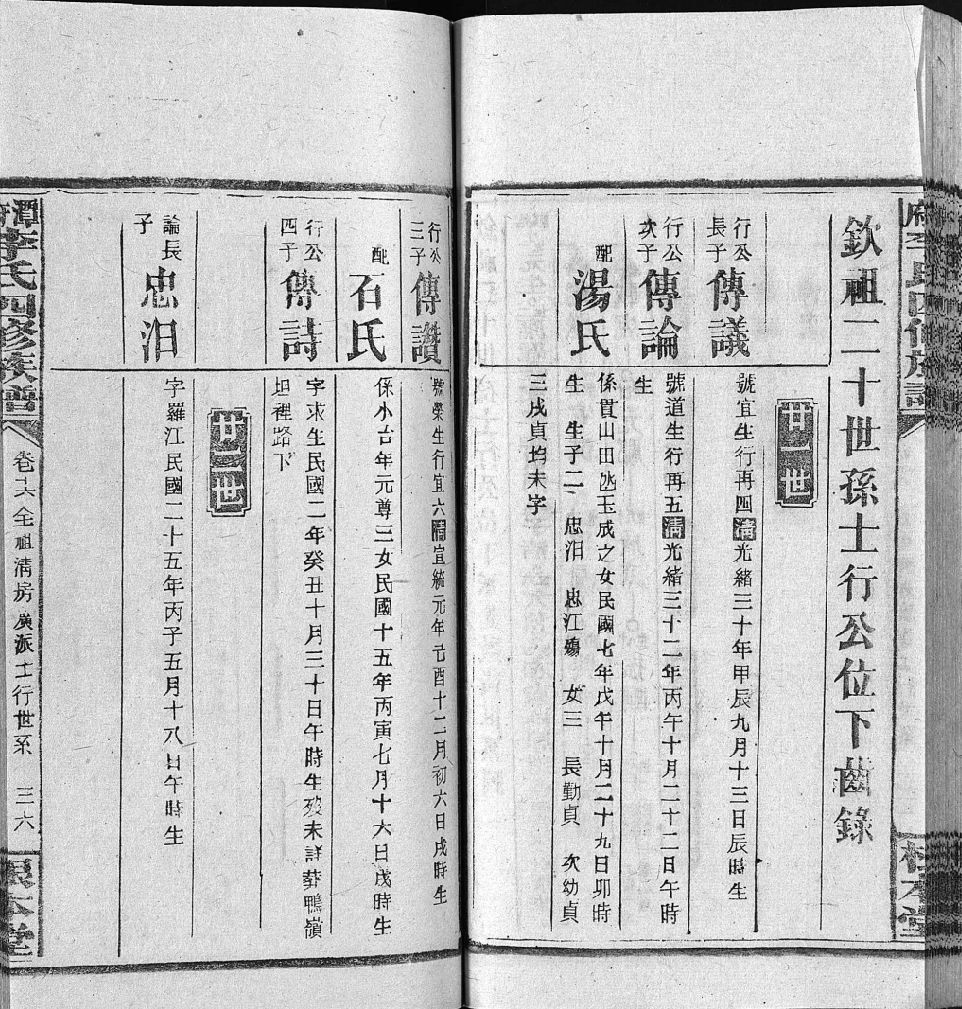 欽祖二十世孫士行公位下齒錄
廿一世
行公長子
傳議
號宜生行再四清光緒三十年甲辰九月十三日辰時生
行公次子
傳論
號道生行再五清光緒三十二年丙午十月二十二日午時生
配
湯氏
係貫山田凼玉成之女民國七年戊午十月二十九日卯時生 生子二 忠汨 忠江殤 女三 長勤貞 次幼貞 三戌貞均未字
行公三子
傳讚
號榮生行宜六清宣統元年己酉十二月初六日戌時生
配
石氏
係小台年元尊三女民國十五年丙寅七月十六日戌時生
行公四子
傳詩
字求生民國二年癸丑十月三十日午時生歿未詳葬鴨嶺坦裡路下
廿二世
論長子
忠汨
字羅江民國二十五年丙子五月十八日午時生
李氏四修族譜
卷六全祖清房廣派士行世系
三六
根本堂